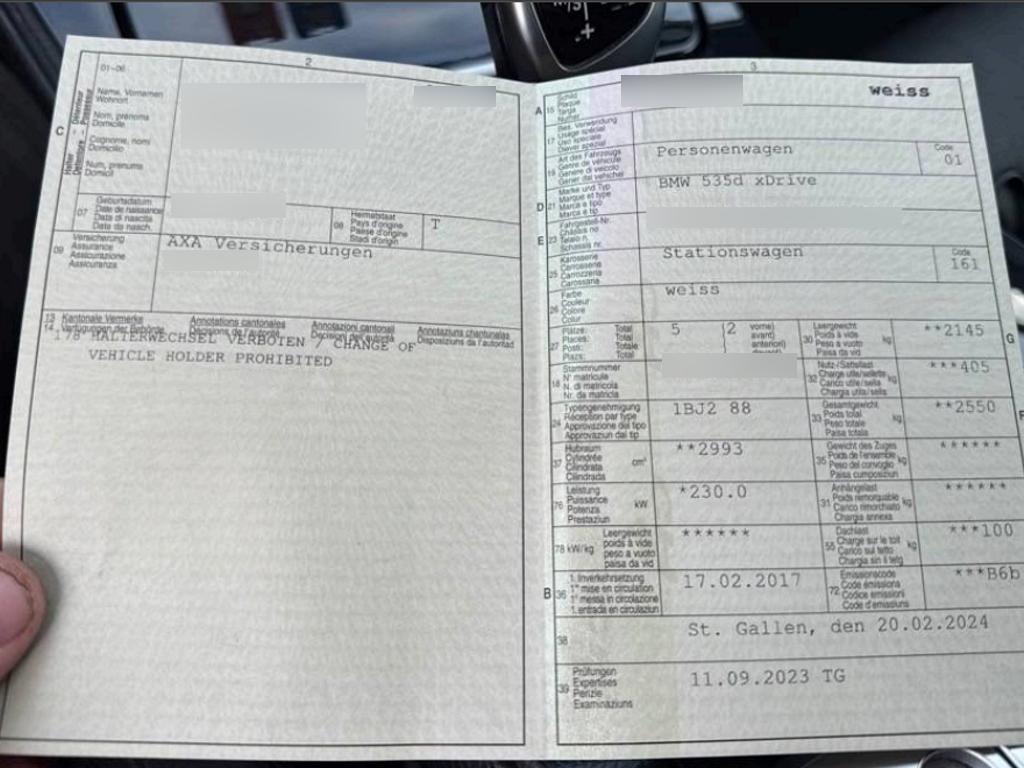 M/S
+
2
01-06
C
Halter
Détenteur
Detentore
Possessur
Name, Vornamen
Wohnort
Nom, prénoms
Domicile
Cognome, nomi
Domicilio
Num, prenums
Domicil
07
Geburtsdatum
Date de naissance
Data di nascita
Data da nasch.
08
Heimatstaat
Pays d'origine
Paese d'origine
Stadi d'origin
T
09
Versicherung
Assurance
Assicurazione
Assicuranza
AXA Versicherungen
13
14
Kantonale Vermerke
Verfügungen der Behörde
Annotations cantonales
Décisions de l'autorité
Annotazioni cantonali
Decisioni dell'autorità
Annotaziuns chantunalas
Disposiziuns da l'autoritad
178 HALTERWECHSEL VERBOTEN / CHANGE OF
VEHICLE HOLDER PROHIBITED
3
A
15
Schild
Plaque
Targa
Numer
weiss
17
Bes. Verwendung
Usage spécial
Uso speciale
Diever spezial
19
Art des Fahrzeugs
Genre de véhicule
Genere di veicolo
Gener dal vehichel
Personenwagen
Code
01
D
21
Marke und Typ
Marque et type
Marca e tipo
Marca e tip
BMW 535d xDrive
E
23
Fahrgestell-Nr.
Châssis no
Telaio n.
Schassis nr.
25
Karosserie
Carrosserie
Carrozzeria
Carossaria
Stationswagen
Code
161
26
Farbe
Couleur
Colore
Colur
weiss
27
Plätze: Total
Places: Total
Posti: Totale
Plazs: Total
5
(2
vorne)
avant)
anteriori)
davant)
30
Leergewicht
Poids à vide
Peso a vuoto
Paisa da vid
kg
**2145
G
18
Stammnummer
N° matricule
N. di matricola
Nr. da matricla
32
Nutz-/Sattellast
Charge utile/sellette
Carico utile/sella
Chargia utila/sella
kg
***405
24
Typengenehmigung
Réception par type
Approvazione del tipo
Approvaziun dal tip
1BJ2 88
33
Gesamtgewicht
Poids total
Peso totale
Paisa totala
kg
**2550
F
37
Hubraum
Cylindrée
Cilindrata
Cilindrada
cm³
**2993
35
Gewicht des Zuges
Poids de l'ensemble
Peso del convoglio
Paisa cumposiziun
kg
******
76
Leistung
Puissance
Potenza
Prestaziun
kW
*230.0
31
Anhängelast
Poids remorquable
Carico rimorchiato
Chargia annexa
kg
******
78 kW/kg
Leergewicht
poids à vide
peso a vuoto
paisa da vid
******
55
Dachlast
Charge sur le toit
Carico sul tetto
Chargia sin il tetg
kg
***100
B
36
1. Inverkehrsetzung
1re mise en circulation
1a messa in circolazione
1. entrada en circulaziun
17.02.2017
72
Emissionscode
Code émissions
Codice emissioni
Code d'emissiuns
***B6b
38
St. Gallen, den 20.02.2024
39
Prüfungen
Expertises
Perizie
Examinaziuns
11.09.2023 TG